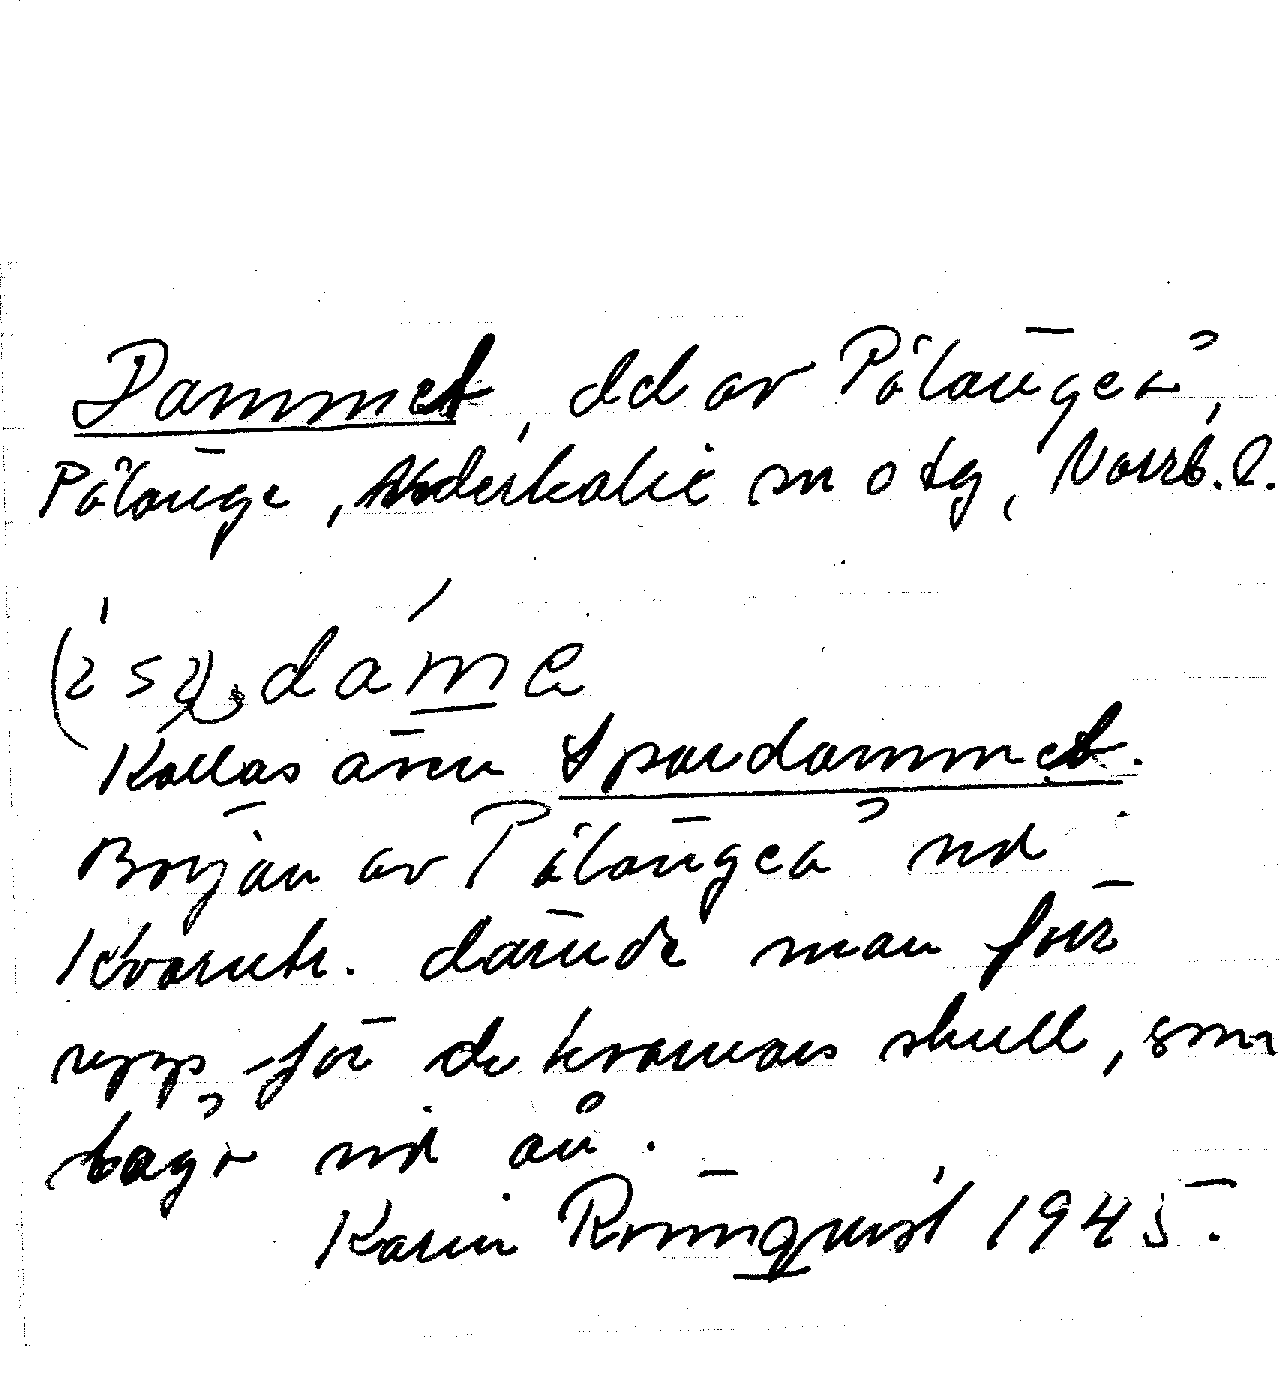 Dammet, del av Pålängeå,
Pålänge, Nederkalix sn o tg, Norrb. l.
dame
Kallas även Spardammet.
Börjän av Pålängeå vid
Kvarntr. därnde man förr
upp för de kvarnars skull, som
lågo vid ån.
Karin Rönnquist 1945.